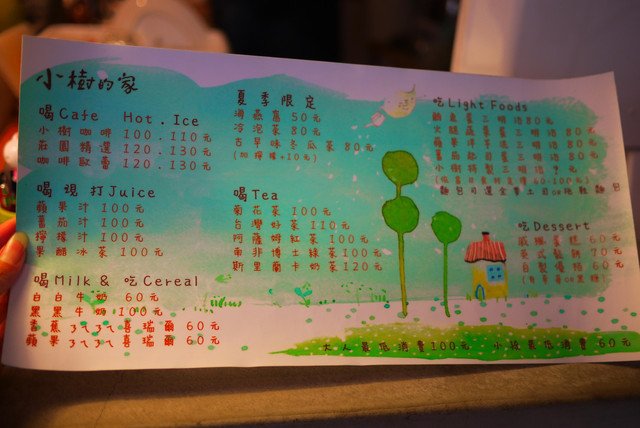 小樹的家
喝Cafe Hot.Ice
小樹咖啡 100.110元
莊園精選 120.130元
咖啡歐蕾 120.130元
喝現打Juice
蘋果汁 100元
蕃茄汁 100元
檸檬汁 100元
果醋冰茶 100元
喝Milk & 吃Cereal
白白牛奶 60元
黑黑牛奶 100元
香蕉ㄋㄟㄋㄟ喜瑞爾 60元
蘋果ㄋㄟㄋㄟ喜瑞爾 60元
夏季限定
海燕窩 50元
冷泡茶 80元
古早味冬瓜茶 80元
(加檸檬+10元)
喝Tea
菊花茶 100元
台灣好茶 110元
阿薩姆紅茶 100元
南非博士綠茶 100元
斯里蘭卡奶茶 120元
吃Light Foods
鮪魚蛋三明治 80元
火腿蔬菜蛋三明治 80元
蘋果洋芋蛋三明治 80元
蕃茄起司蛋三明治 80元
小樹特製三明治?元
60-100元)
麵包可選全麥土司or雜糧麵包
吃Dessert
戚風蛋糕 60元
英式鬆餅 70元
自製優格 60元
大人最低消費100元 小孩最低消費60元